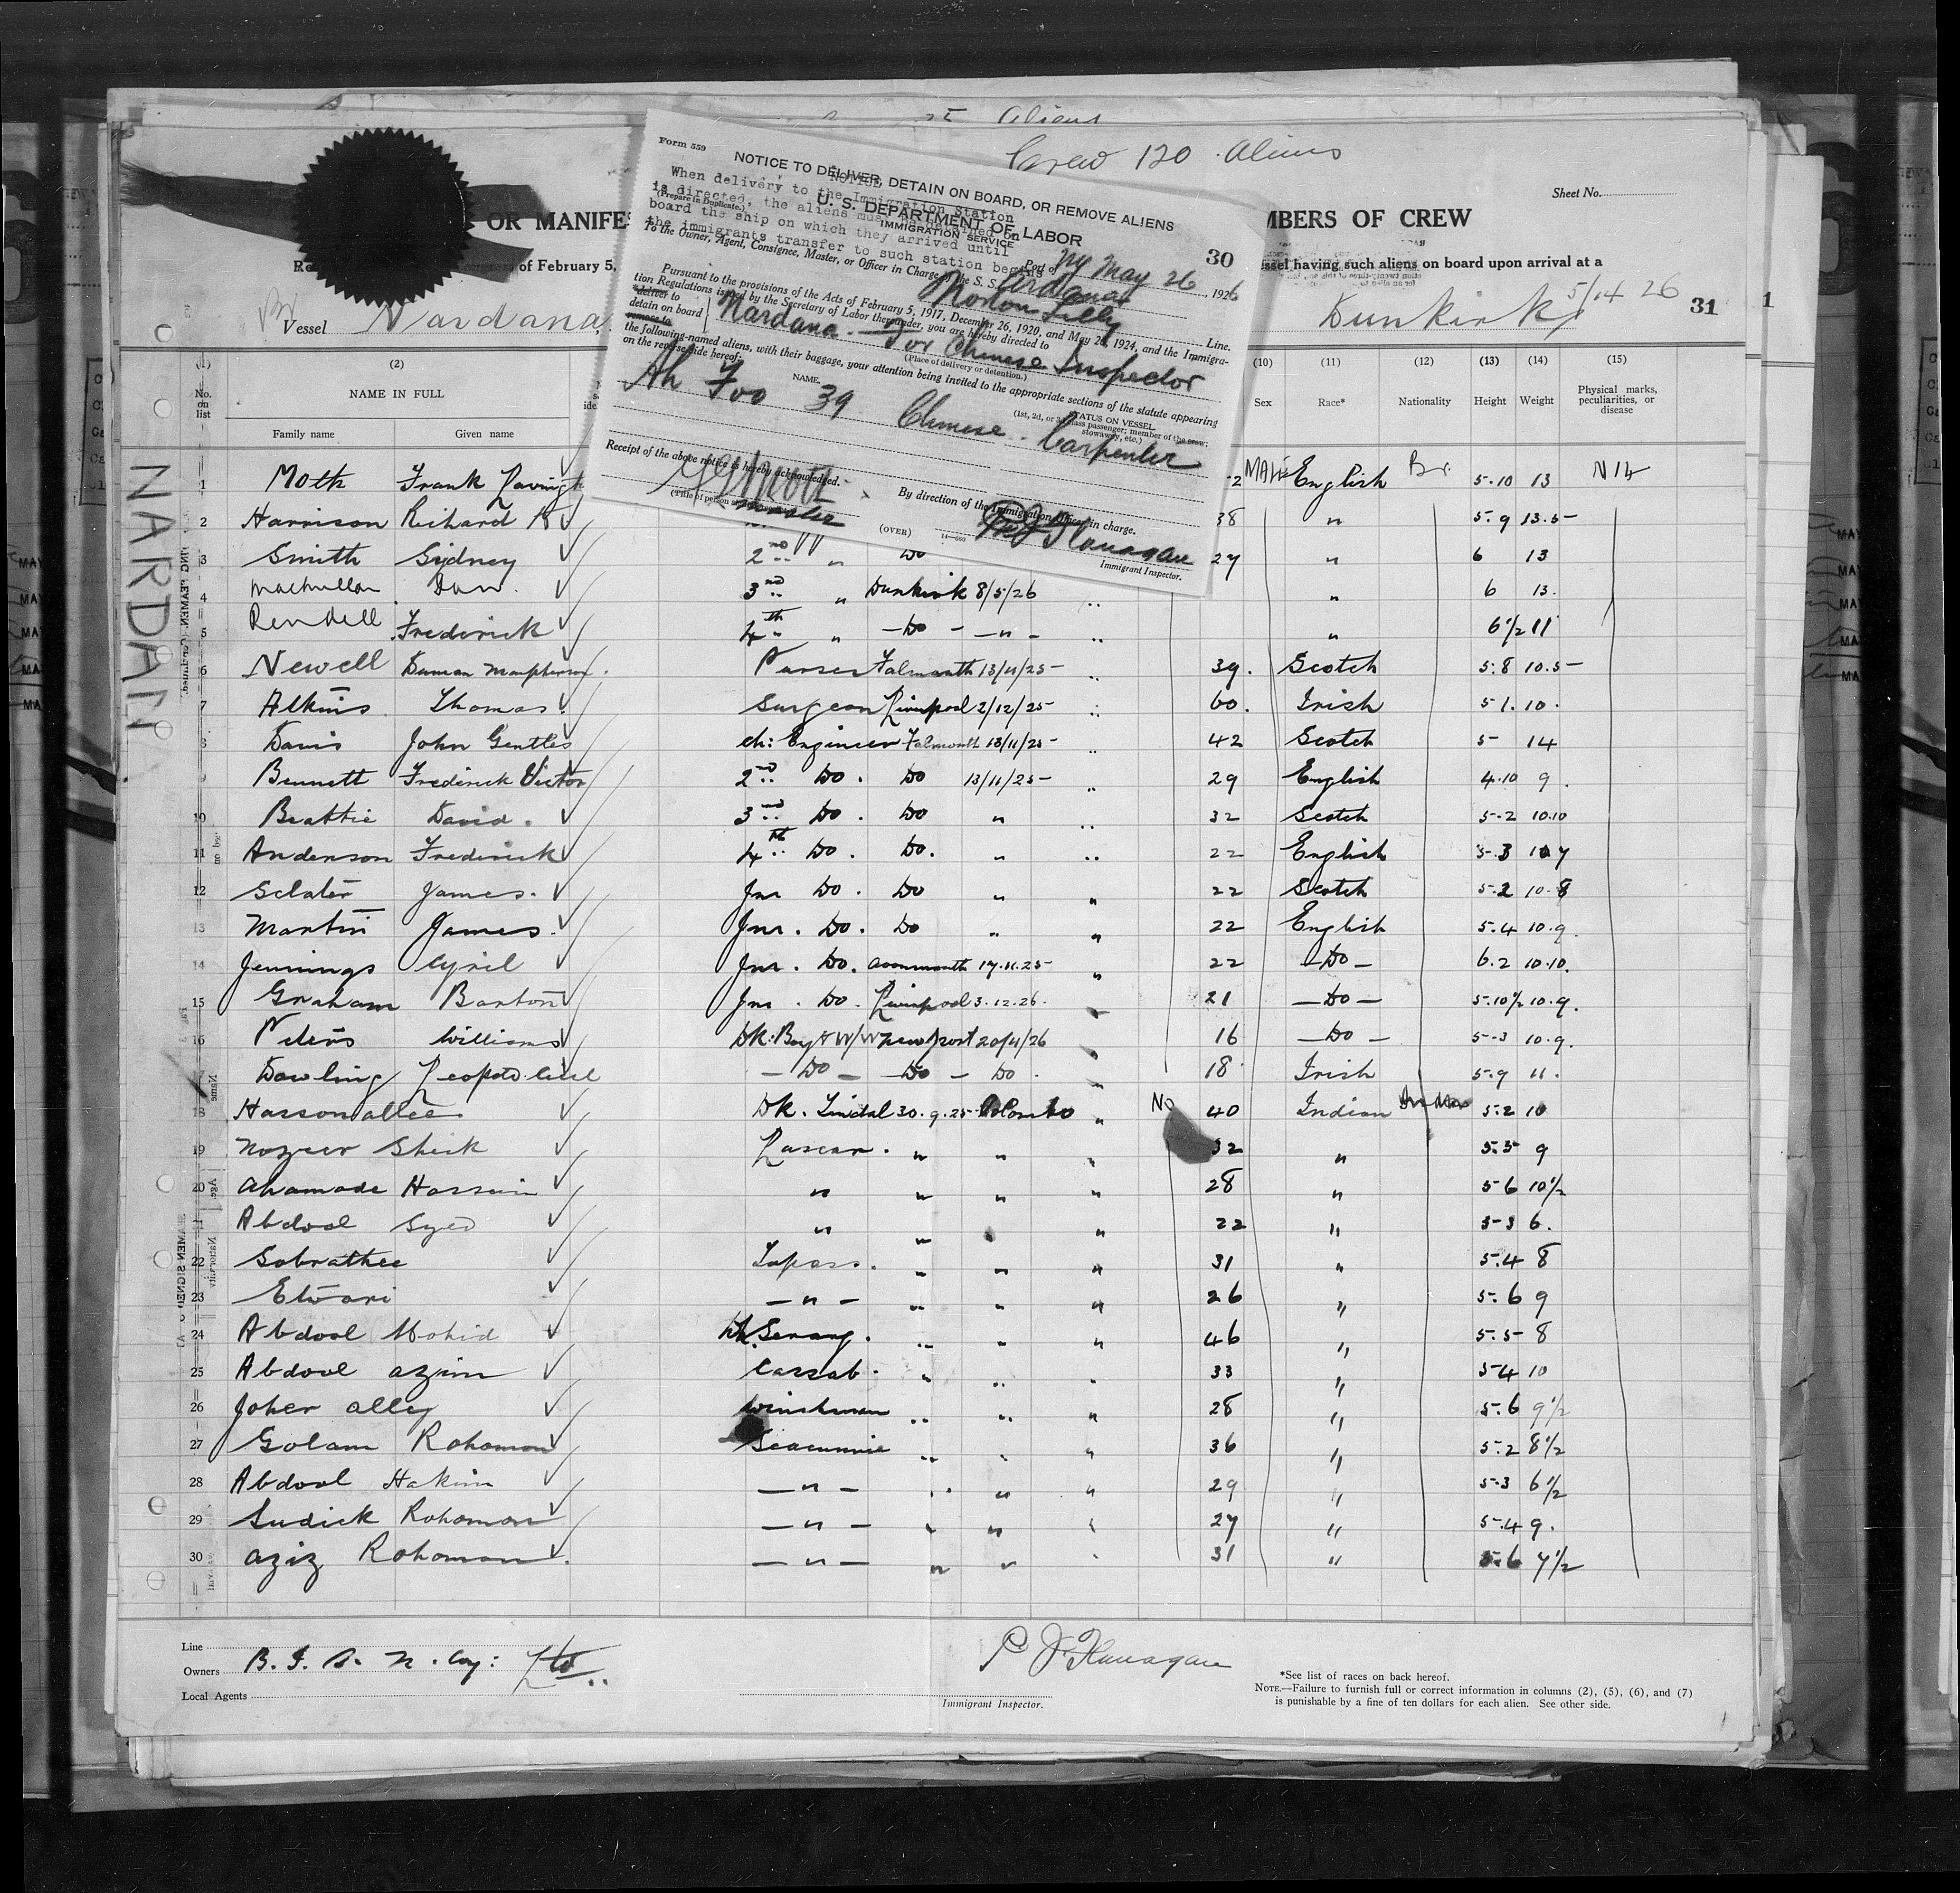 Crew 120 Aliens
Sheet No.
OR MANIFES
MBERS OF CREW
of February 5,
essel having such aliens on board upon arrival at a
Vessel Nardana,
Dunkirk 5/14 26
31
Form 559
NOTICE TO DELIVER, DETAIN ON BOARD, OR REMOVE ALIENS
NOTICE
When delivery to the Immigration Station
is directed, the aliens must be detained on
board the ship on which they arrived until
the immigrants transfer to such station begins
(Prepare in Duplicate.)
U. S. DEPARTMENT OF LABOR
IMMIGRATION SERVICE
30
Port of NY May 26, 1926
To the Owner, Agent, Consignee, Master, or Officer in Charge of the S. S. Nardana
Norton Lilly Line.
Pursuant to the provisions of the Acts of February 5, 1917, December 26, 1920, and May 26, 1924, and the Immigra-
tion Regulations issued by the Secretary of Labor thereunder, you are hereby directed to
deliver to
detain on board
remove to
Nardana — For Chinese Inspector
(Place of delivery or detention.)
the following-named aliens, with their baggage, your attention being invited to the appropriate sections of the statute appearing
on the reverse side hereof:
NAME.
STATUS ON VESSEL
(1st, 2d, or 3d class passenger; member of the crew; stowaway, etc.)
Ah Foo 39 Chinese - Carpenter
Receipt of the above notice is hereby acknowledged.
Master
By direction of the Immigration Officer in charge.
P J Flanagan
(OVER)
14—660
Immigrant Inspector.
(1) (2) (10) (11) (12) (13) (14) (15)
No. on list
NAME IN FULL
Family name Given name
Sex Race* Nationality Height Weight Physical marks, peculiarities, or disease
NARDANA
1 Moth Frank MALE English Br. 5.10 13 Nil
2 Harrison Richard 38 " 5.9 13.5
3 Smith Sydney 2nd " Do 27 " 6 13
4 Macmillan Dan 3rd " Dunkirk 8/5/26 " " 6 13.
5 Rendell Frederick 4th " -Do- -"- " " 6 1/2 11
6 Newell Duncan Purser Falmouth 13/11/25 " 39. Scotch 5.8 10.5
7 Atkins Thomas. Surgeon Liverpool 2/12/25 " 60. Irish 5 1. 10.
8 Davis John Gentles ch: Engineer Falmouth 13/11/25 " 42 Scotch 5 14
9 Bennett Frederick Victor 2nd Do. Do 13/11/25 " 29 English 4.10 9.
10 Beattie David. 3rd Do. Do " " 32 Scotch 5.2 10.10
11 Anderson Frederick 4th Do. Do. " " 22 English 5.3 10 7
12 Sclater James. Jnr Do. Do " " 22 Scotch 5.2 10.8
13 Martin James. Jnr. Do. Do " " 22 English 5.4 10.9.
14 Jennings Cyril Jnr. Do. Avonmouth 17.11.25 " 22 -Do- 6.2 10.10.
15 Graham Barton Jnr. Do. Liverpool 3.12.26. " 21 -Do- 5.10 1/2 10.9.
16 Peters Williams Dk: Boy Newport 20/4/26 " 16 -Do- 5.3 10.9.
17 Dowling Leopold Cecil -Do- -Do- Do. " 18 Irish 5.9 11.
18 Hassonallee. Dk. Tindal 30.9.25 Colombo " No 40 Indian Indian 5.2 10
19 Nozeer Sheik Lascar. " " " 32 " 5.5 9
20 Ahamade Hossain " " " " 28 " 5 6 10 1/2
21 Abdool Syed " " " " 22 " 5-3 6.
22 Sobrathee Topass. " " " 31 " 5.4 8
23 Etwari -"- " " " 26 " 5.6 9
24 Abdool Mohid Serang. " " " 46 " 5.5 8
25 Abdool Azim Cassab. " " " 33 " 5 4 10
26 Joher Alley Winchman " " " 28 " 5.6 9 1/2
27 Golam Rohoman Seacunnie " " " 36 " 5.2 8 1/2
28 Abdool Hakim -"- " " " 29 " 5.3 6 1/2
29 Sudick Rohoman -"- " " " 27 " 5.4 9.
30 Aziz Rohoman. -"- " " " 31 " 5.6 7 1/2
Line
Owners B. I. S. N. Coy: Ltd.
Local Agents
P. J. Flanagan
Immigrant Inspector.
*See list of races on back hereof.
NOTE.—Failure to furnish full or correct information in columns (2), (5), (6), and (7)
is punishable by a fine of ten dollars for each alien. See other side.